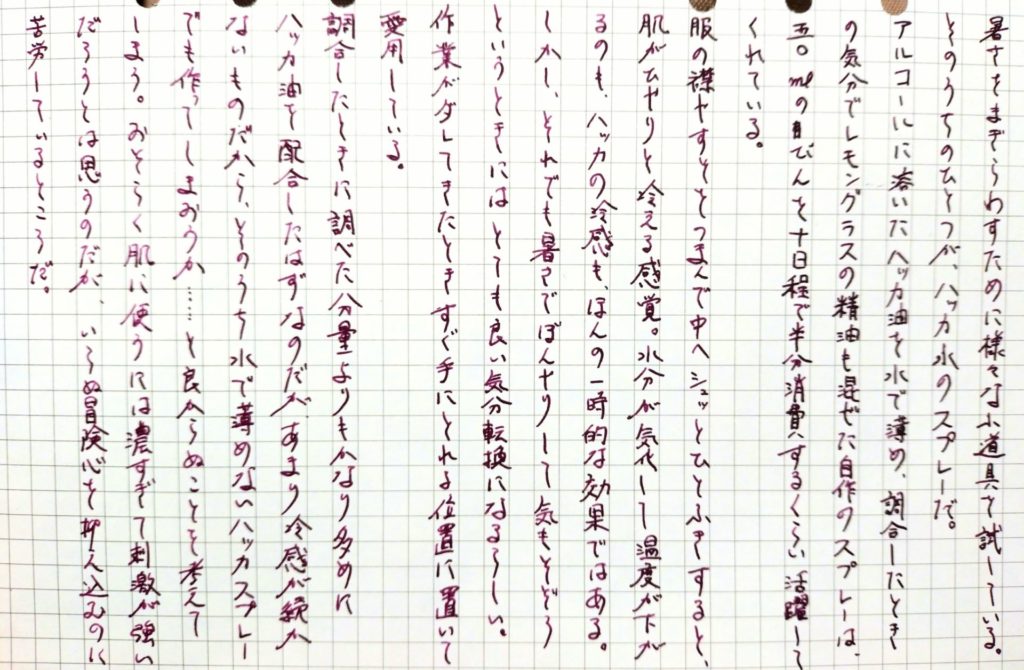 暑さをまぎらわすために様々な小道具を試している。
そのうちのひとつが、ハッカ水のスプレーだ。
アルコールに溶いたハッカ油を水で薄め、調合したとき
の気分でレモングラスの精油も混ぜた自作のスプレーは、
五〇mlのびんを十日程で半分消費するくらい活躍して
くれている。
服の襟やすそをつまんで中へシュッとひとふきすると、
肌がひやりと冷える感覚。水分が気化して温度が下が
るのも、ハッカの冷感も、ほんの一時的な効果ではある。
しかし、それでも暑さでぼんやりして気もそぞろ
というときには とても良い気分転換になるらしい。
作業がダレてきたときすぐ手にとれる位置に置いて
愛用している。
調合したときに調べた分量よりもかなり多めに
ハッカ油を配合したはずなのだが、あまり冷感が続か
ないものだから、そのうち水で薄めないハッカスプレー
でも作ってしまおうか……と良からぬことを考えて
しまう。おそらく肌に使うには濃すぎて刺激が強い
だろうとは思うのだが、いらぬ冒険心を抑え込むのに
苦労しているところだ。